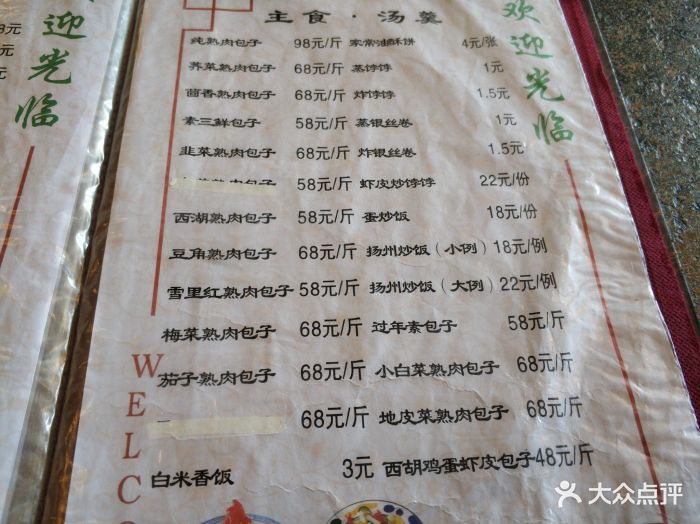 主食·汤羹
纯熟肉包子 98元/斤 家常油酥饼 4元/张
荠菜熟肉包子 68元/斤 蒸饽饽 1元
茴香熟肉包子 68元/斤 炸饽饽 1.5元
素三鲜包子 58元/斤 蒸银丝卷 1元
韭菜熟肉包子 68元/斤 炸银丝卷 1.5元
熟肉包子 58元/斤 虾皮炒饽饽 22元/份
西湖熟肉包子 58元/斤 蛋炒饭 18元/份
豆角熟肉包子 68元/斤 扬州炒饭(小例) 18元/例
雪里红熟肉包子 58元/斤 扬州炒饭(大例) 22元/例
梅菜熟肉包子 68元/斤 过年素包子 58元/斤
茄子熟肉包子 68元/斤 小白菜熟肉包子 68元/斤
68元/斤 地皮菜熟肉包子 68元/斤
白米香饭 3元 西胡鸡蛋虾皮包子 48元/斤
欢迎光临
迎光临
WELC
大众点评